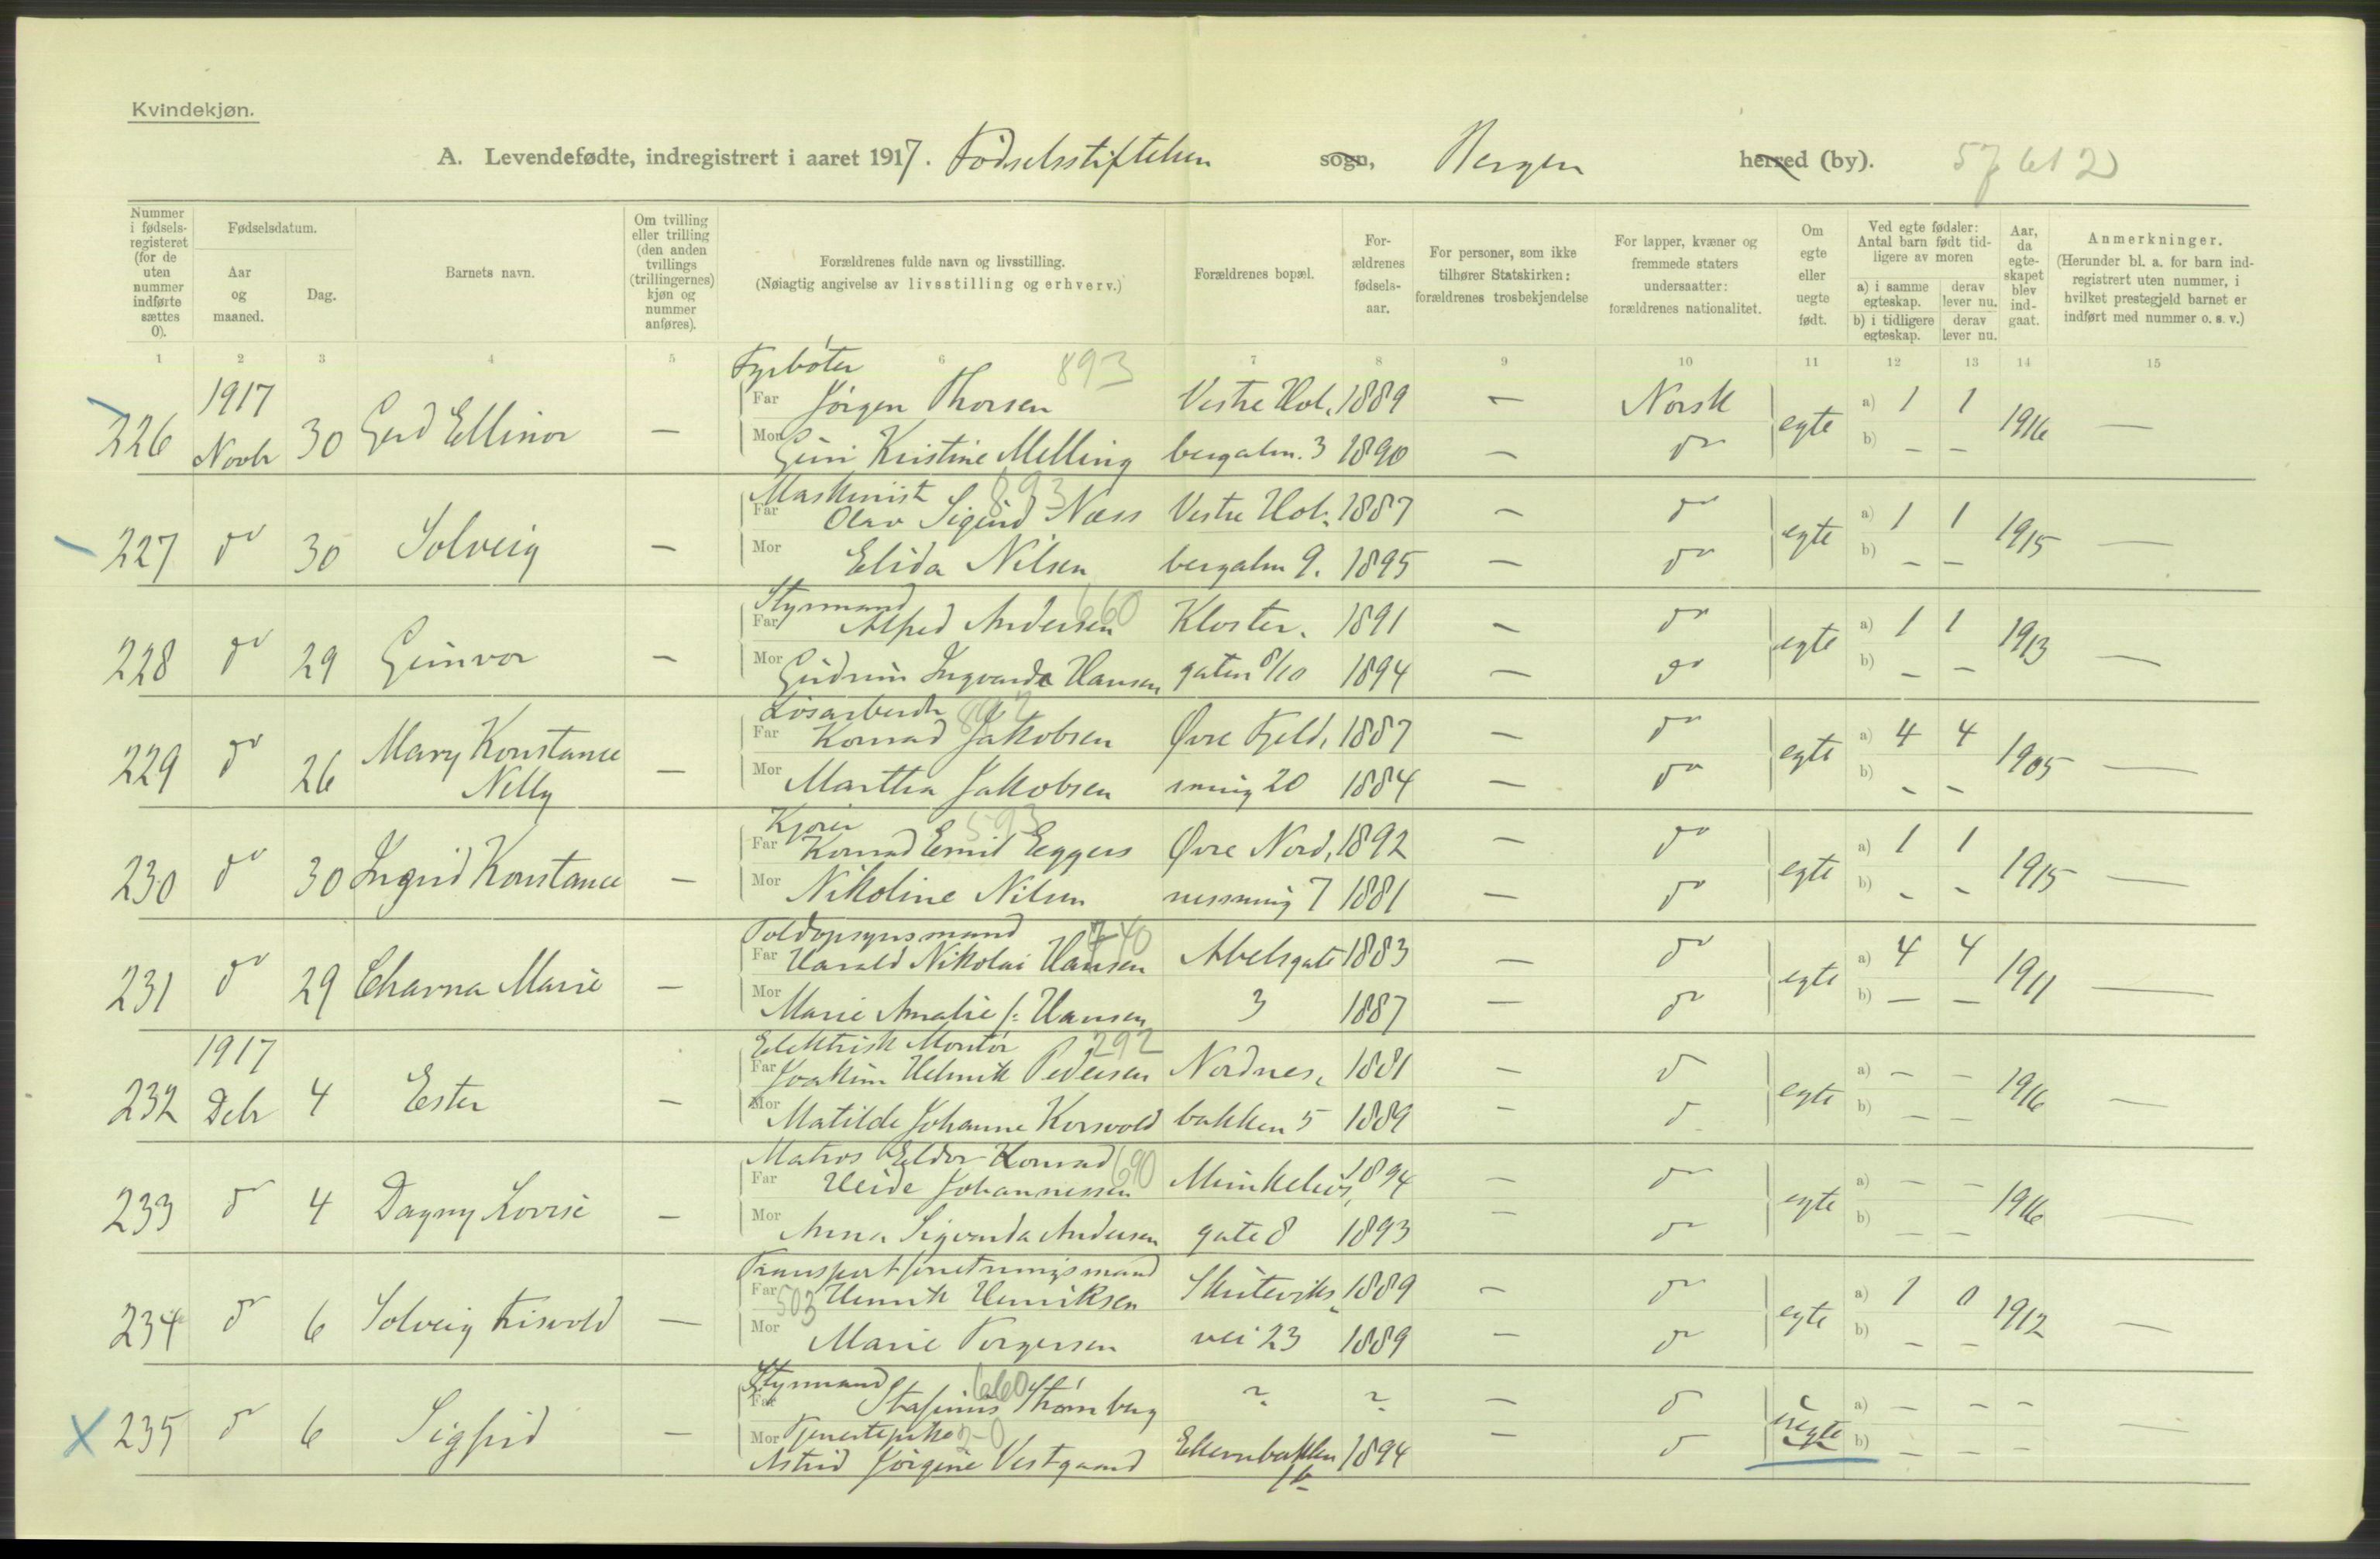 Kvindekjøn.
A. Levendefødte, indregistrert i aaret 1917. Fødselsstiftelsen sogn, Bergen herred (by).
Nummer i fødselsregisteret (for de uten nummer indførte sættes 0).
Fødselsdatum.
Aar og maaned.
Dag.
Barnets navn.
Om tvilling eller trilling (den anden tvillings (trillingernes) kjøn og nummer anføres).
Forældrenes fulde navn og livsstilling.
(Nøiagtig angivelse av livsstilling og erhverv.)
Forældrenes bopæl.
Forældrenes fødselsaar.
For personer, som ikke tilhører Statskirken: forældrenes trosbekjendelse
For lapper, kvæner og fremmede staters undersaatter: forældrenes nationalitet.
Om egte eller uegte født.
Ved egte fødsler: Antal barn født tidligere av moren
a) i samme egteskap. derav lever nu.
b) i tidligere egteskap. derav lever nu.
Aar, da egteskapet blev indgaat.
Anmerkninger.
(Herunder bl. a. for barn indregistrert uten nummer, i hvilket prestegjeld barnet er indført med nummer o. s. v.)
1 2 3 4 5 6 7 8 9 10 11 12 13 14 15
Fyrbøter 893
1917 Far Jørgen Thorsen Vestre Hol. 1889 — Norsk a) 1 1
226 Novbr 30 Gerd Ellinor — egte 1916 —
Mor Guri Kristine Melling bergalm. 3 1890 — do b) — —
Maskinist 893
Far Olav Sigurd Næss Vestre Hol. 1887 — do a) 1 1
227 do 30 Solveig — egte 1915 —
Mor Elida Nilsen bergalm 9. 1895 — do b) — —
Styrmand 660
Far Alfred Andersen Kloster. 1891 — do a) 1 1
228 do 29 Gunvor — egte 1913 —
Mor Gudrun Ingvarda Hansen gaten 8/10 1894 — do b) — —
Løsarbeider
Far Konrad Jakobsen Øvre Fjeld. 1887 — do a) 4 4
229 do 26 Mary Konstance Nelly — egte 1905 —
Mor Martha Jakobsen smug 20 1884 — do b) — —
Kjører 593
Far Konrad Emil Eggers Øvre Nord. 1892 — do a) 1 1
230 do 30 Ingrid Konstance — egte 1915 —
Mor Nikoline Nilsen nessmug 7 1881 — do b) — —
Toldopsynsmand
Far Harald Nikolai Hansen Abelsgate 1883 — do a) 4 4
231 do 29 Charna Marie — egte 1911 —
Mor Marie Amalie f: Hansen 3 1887 — do b) — —
Elektrisk Montør 292
1917 Far Joakim Helmik Pedersen Nordnes. 1881 — do a) — —
232 Debr 4 Ester — egte 1916 —
Mor Matilde Johanne Korsvold bakken 5 1889 — do b) — —
Matros Eldor Konrad 690
Far Heide Johannessen Munkelivs 1894 — do a) — —
233 do 4 Dagny Lovise — egte 1916 —
Mor Anna Sigvarda Andersen gate 8 1893 — do b) — —
Transportforretningsmand
Far 503 Henrik Henriksen Skuteviks 1889 — do a) 1 0
234 do 6 Solveig Risvold — egte 1912 —
Mor Marie Torgersen vei 23 1889 — do b) — —
Styrmand 660
Far Strømberg ? ? — do a) — — —
X 235 do 6 Sigfrid — uegte —
Mor Tjenestepike
Astrid Jørgine Vestgaard 1894 — do b) — — —